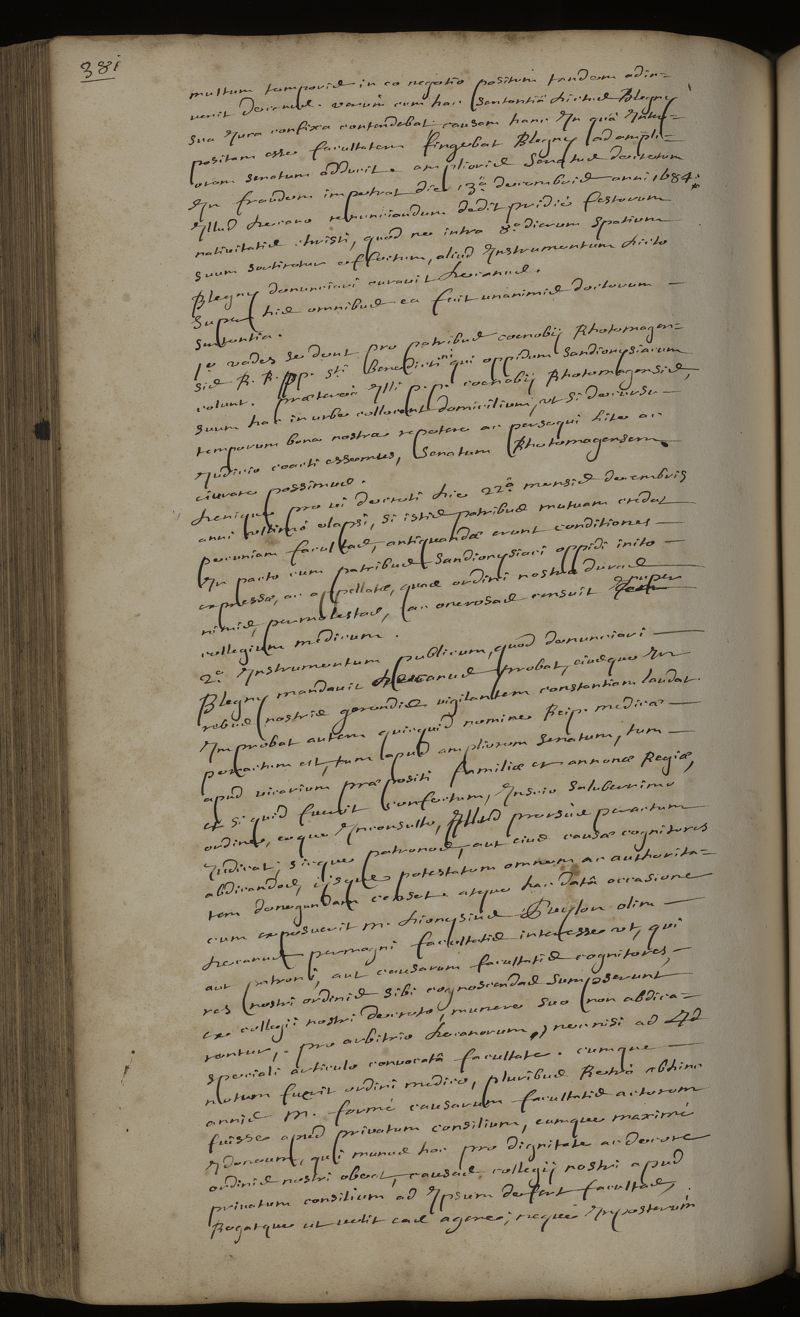 381
multum temporis in eo negotio positum tandem adin=
venit decanus. verùm cum hac sententiâ dictus Blegny
sua Jura confixa contendebat, causam hanc In quâ Inter=
positam esse facultatem fingebat Blegny ad ampli=
orem senatum adducit. amplioris senatus decretum
In fraudem impetrat die 13ª decembris anni 1684.*
Illud decano renunciandum dedit pridiè festorum
nativitatis christi, quod ne intra 8º dierum spatium
suum sortiretur effectum, aliud Instrumentum dicto
Blegny denunciari curavit decanus.
Super his omnibus ea fuit unanimis doctorum —
sententia.
1º vades se dent pro patribus coenobij Rhotomagen=
sis R. R. pp. sti Benedicti qui oppidum sandionysiacum
colunt. præterea Illi p.p. coenobij Rhotomagensis,
suum hac in urbe collocent domicilium, ut si decursu —
temporum bona nostra repetere ac persequi lite ac
Judicio coacti essemus, senatum Rhotomagensem
evitare possimus.
denique pro vi decreti die 22ª mensis decembris
anni ultimò elapsi, si istis patribus mutuam credat
pecuniam facultas, antiquandæ erunt conditiones —
In pacto cum patribus sandionysiaci oppidi inito —
expressæ, ac appellatæ, quas ordini nostro duras
nimis, permolestas, ac onerosas censuit nuper
collegium medicum.
2º Instrumentum publicum, quod denunciari —
Blegny mandavit decanus probat, eiusque In
rebus nostris gerendis vigilantem constantiam laudat.
Improbat autem quicquid nomine Reip. medicæ —
peractum est, tum apud ampliorem senatum, tum —
apud vicarium præpositi familiæ et annonæ Regiæ,
et si quid fuerit confectum, Inscio saluberrimo
ordine, eoque Inconsulto, Illud prorsùs peractum
Iudicat; sicque patronos, aut eius causæ cognitores
abdicandos, ijsque potestatem omnem ac authorita=
tem denegandam censet. atque hac datâ occasione
cum exposuerit M. dionysius Puylon olim —
decanus permagni facultatis interesse ut, qui
aut patroni, aut causarum facultatis cognitores,
res nostri ordinis sibi cognoscendas sumpserunt
ex collegii nostri decreto, munere suo non abdica=
rentur, pro arbitrio decanorum, nec nisi ad Id
speciali articulo convocatâ facultate. cumque —
notum fuerit ordini medico, pluribus Retrò abhinc
annis M. formé causarum facultatis actorem
fuisse apud privatum consilium, eumque maximè
Idoneum, qui munus hoc pro dignitate ac decore
ordinis nostri obeat, causas collegij nostri apud
privatum consilium ad Ipsum defert facultas,
Rogatque ut velit eas agere; neque Inposterùm